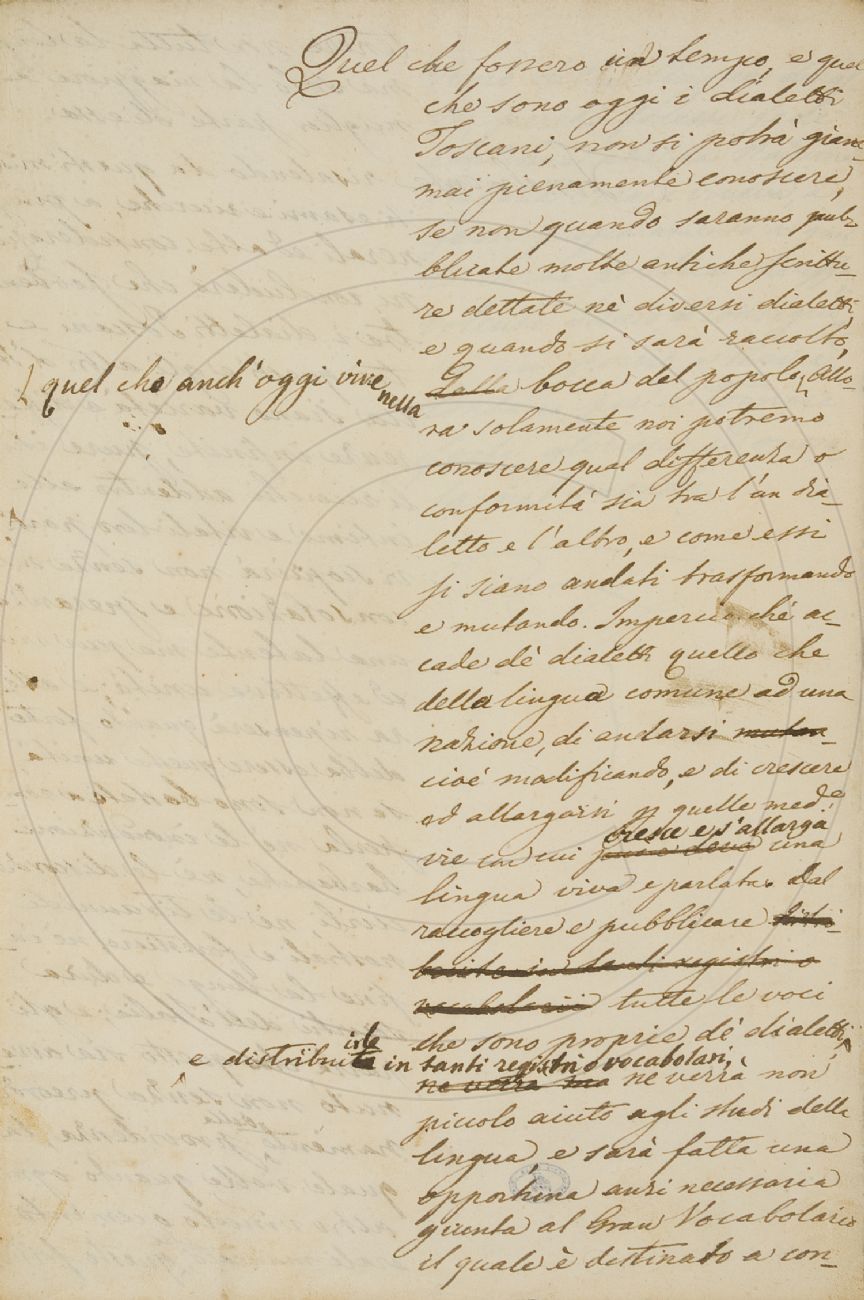 Quel che fossero un tempo, e quel
che sono oggi i dialetti
Toscani, non si potrà giam-
mai pienamente conoscere,
se non quando saranno pub-
blicate molte antiche scrittu-
re dettate nè diversi dialetti,
e quando si sarà raccolto,
quel che anch'oggi vive nella
dalla bocca del popolo, Allo-
ra solamente noi potremo
conoscere qual differenza o
conformità sia tra l'un dia-
letto e l'altro, e come essi
si siano andati trasformando
e mutando. Imperciochè ac-
cade dè dialetti quello che
della lingua comune ad una
nazione, di andarsi mutan-
cioè modificando, e di crescere
ed allargarsi p quelle med.e
cresce e s'allarga
vie in cui una
lingua viva e parlata. Dal
raccogliere e pubblicare distri-
buite in tanti registri o
vocabolarii tutte le voci
che sono proprie dè dialetti,
e distribuirle in tanti registri o vocabolari,
ne verrà ne verrà non
piccolo aiuto agli studi della
lingua, e sarà fatta una
opportuna anzi necessaria
giunta al Gran Vocabolario
il quale è destinato a con-